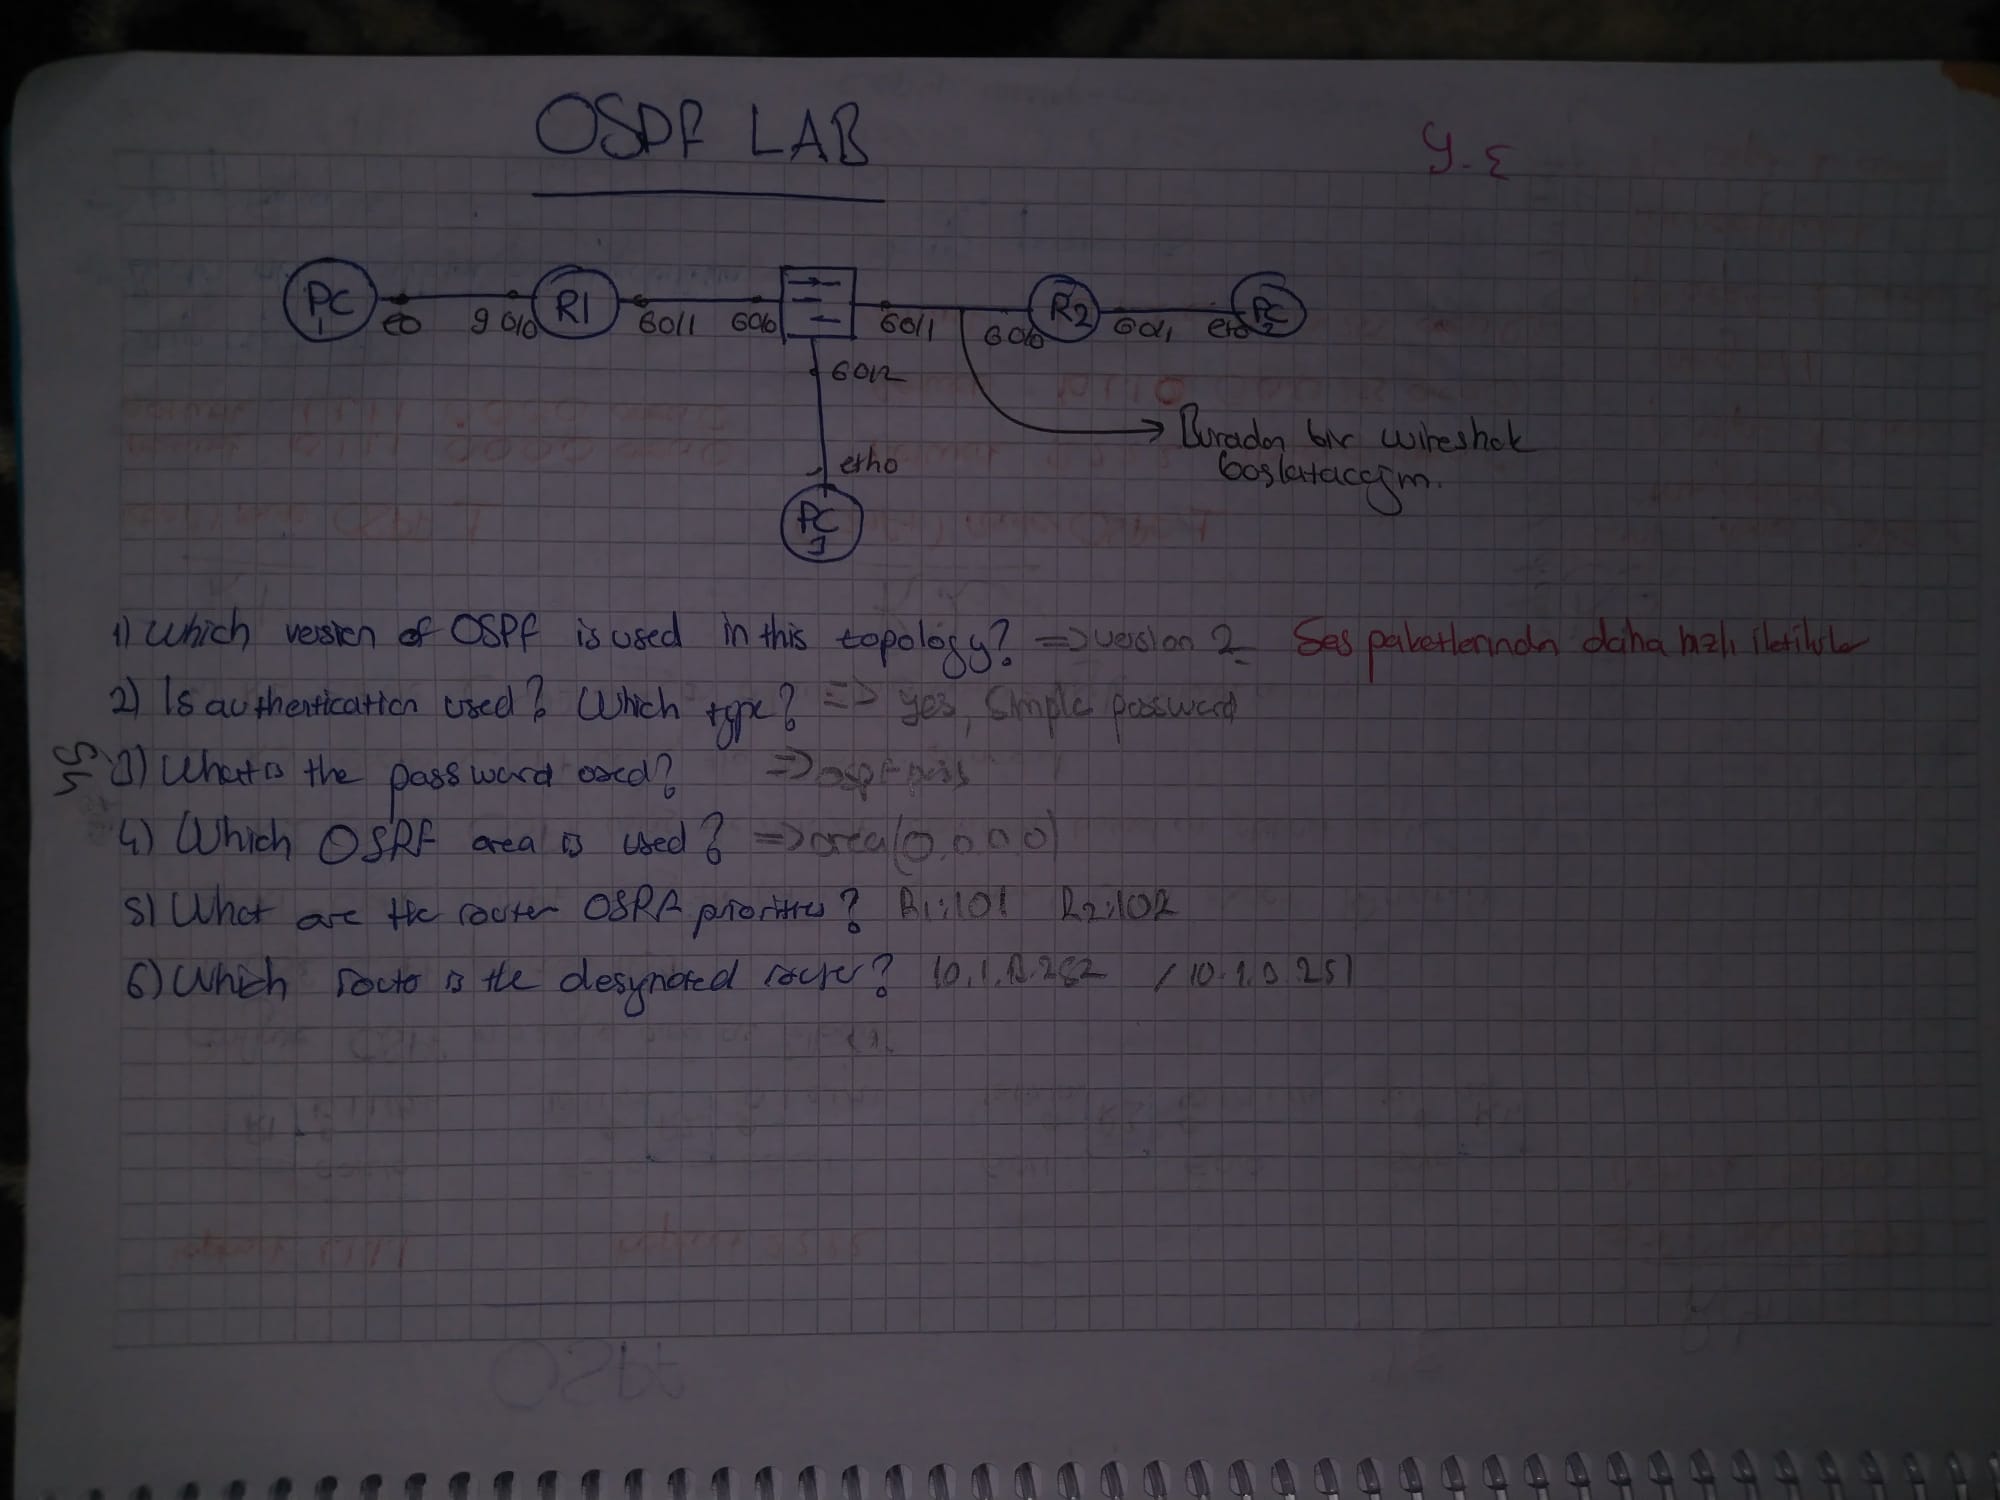 OSPF LAB
PC 1 e0 g 0/0 R1 G0/1 G0/0 G0/1 G0/0 R2 G0/1 eth0 PC 2
G0/2
eth0
PC 3
Buradan bir wireshak
başlatacağım.
1) Which version of OSPF is used in this topology? => version 2 Ses paketlerinden daha hızlı iletilirler
2) Is authentication used? Which type? => yes, Simple password
3) What is the password used? => ospfpass
4) Which OSPF area is used? => area(0.0.0.0)
5) What are the router OSPF priorities? R1:101 R2:102
6) Which router is the desgnated router? / 10.1.0.251